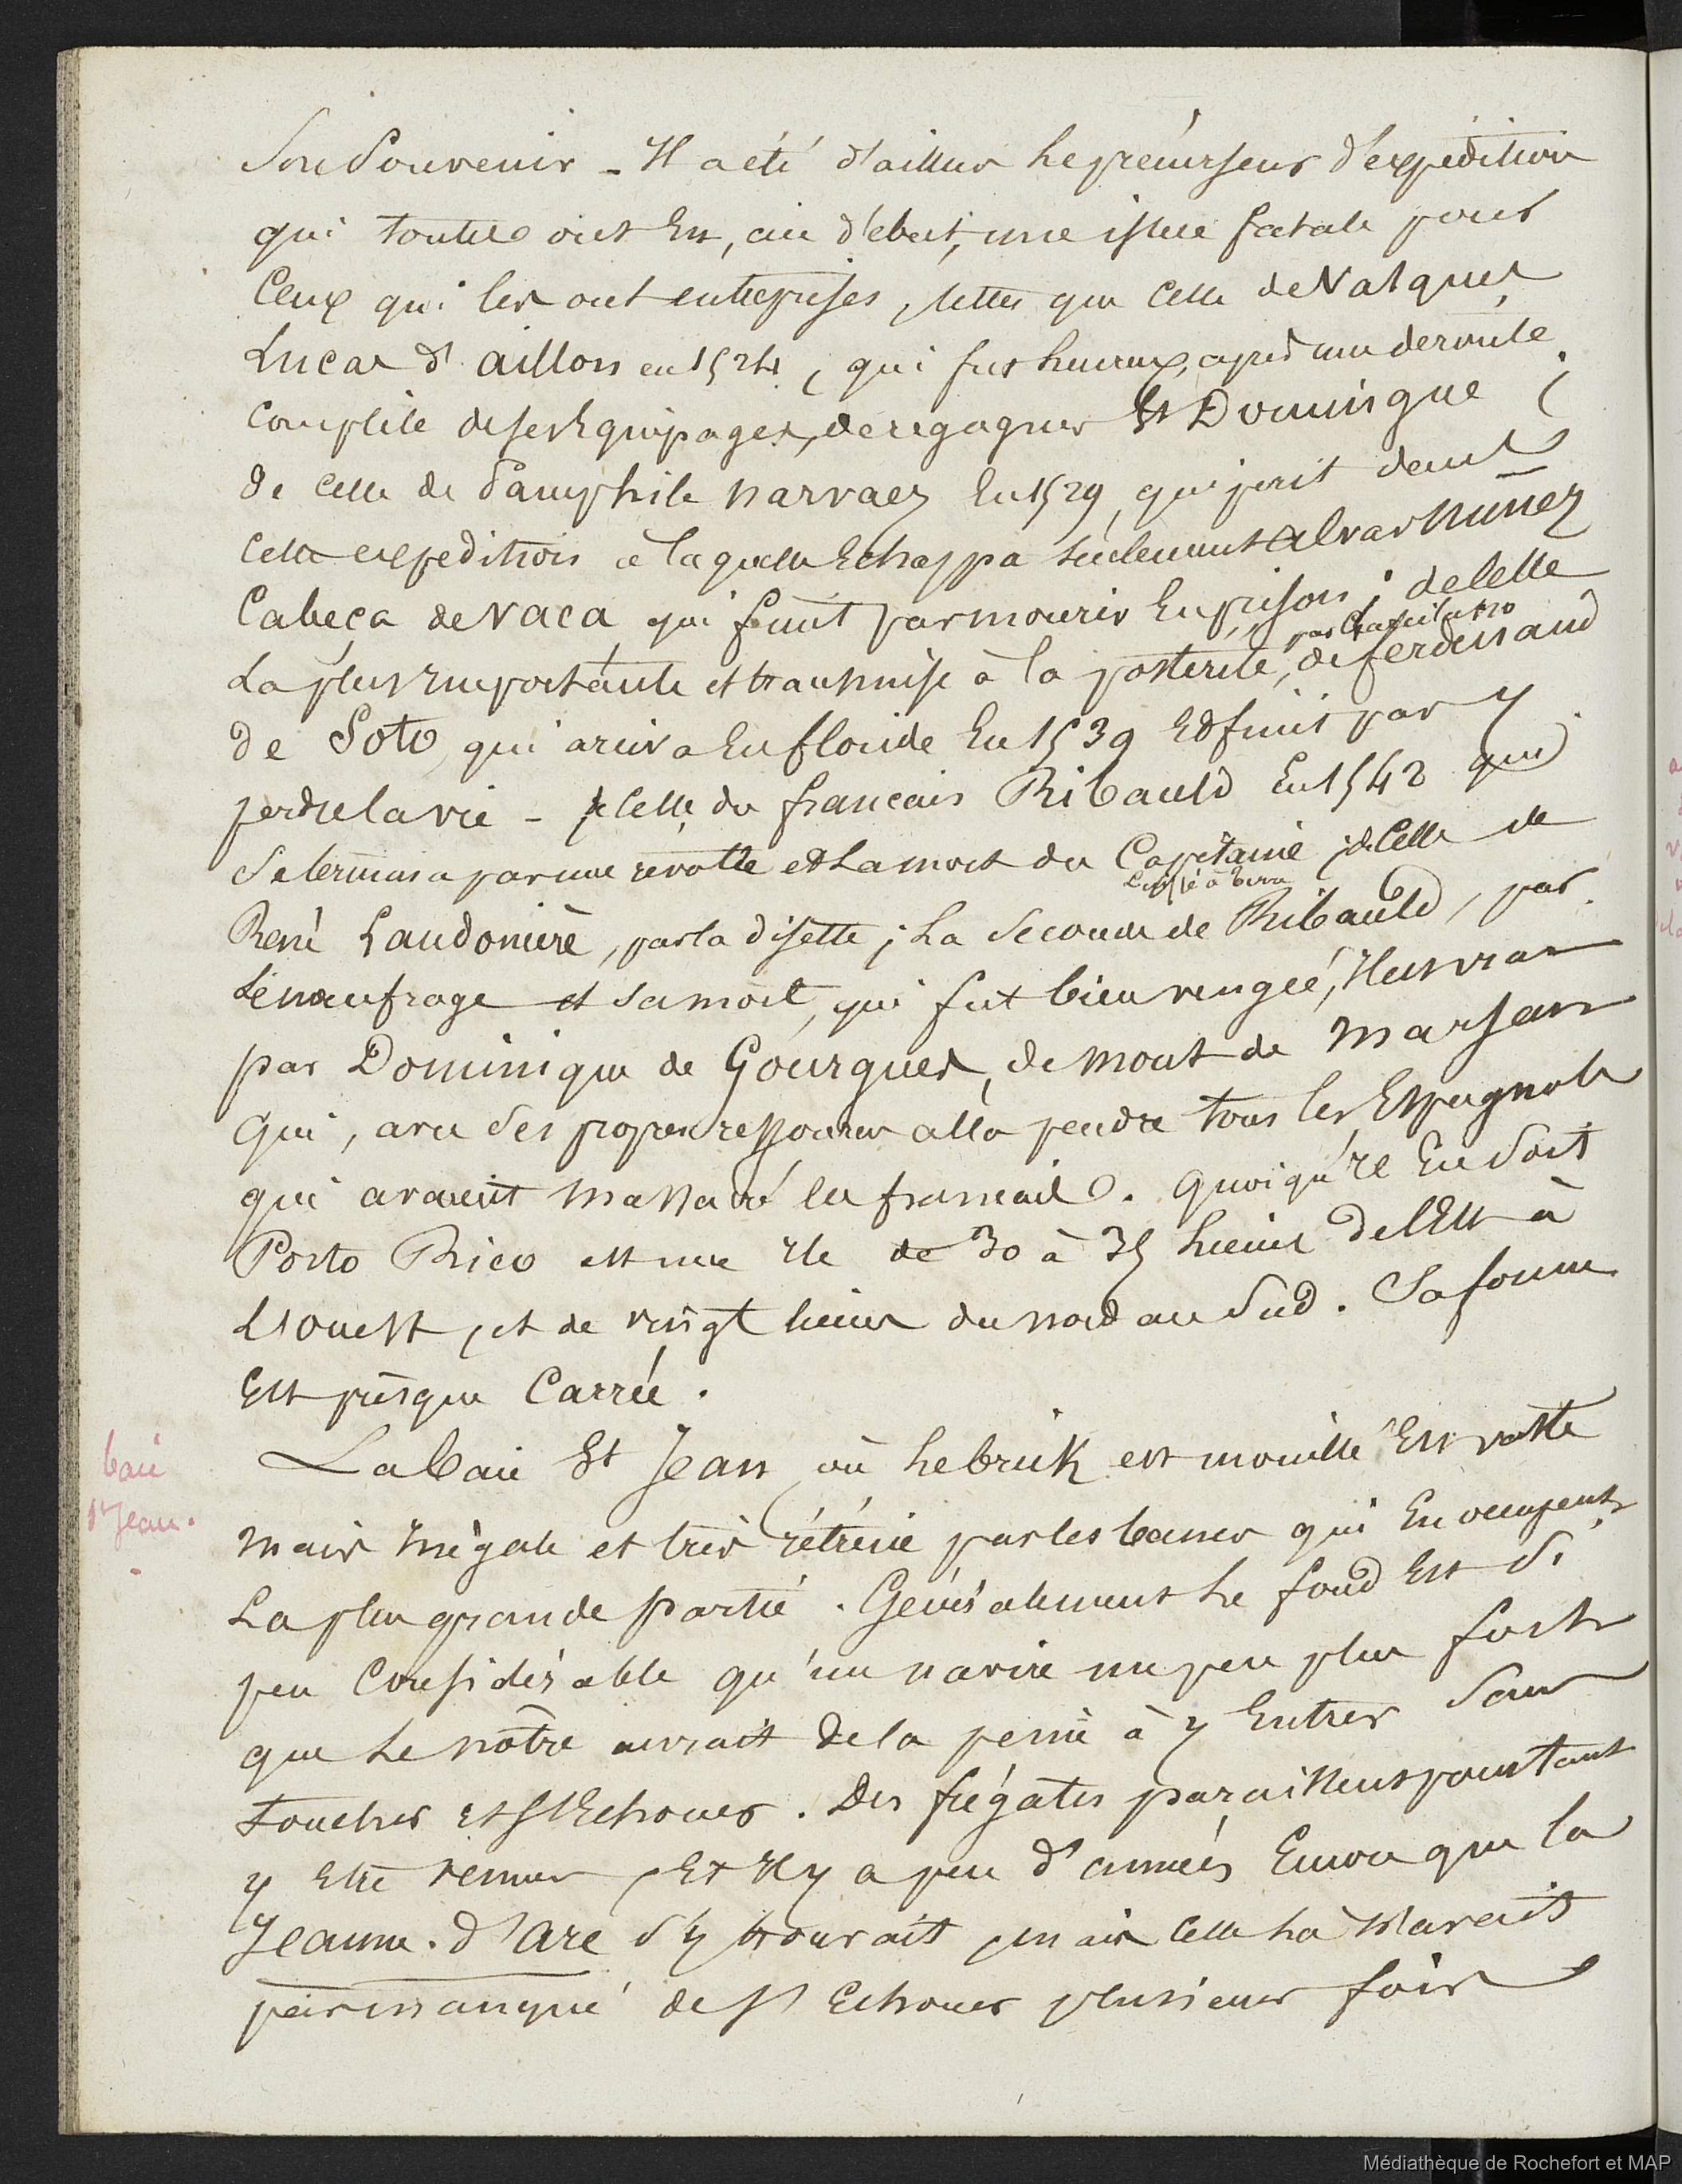 Son Souvenir - Il a été d'ailleurs le précurseur d'expédition
qui toutes ont eu, au début, une issue fatale pour
Ceux qui les ont entreprises, telles que Celle de Vasquez
Lucas d'aillon en 1524, qui fut heureux, après une déroute
Complète de ses Equipages, de regagner St Domingue ;
de Celle de Pamphile narvaez En 1529, qui périt dans
Cette expedition à laquelle Echappa seulement alvar Nuñez
Cabeça de Vaca, qui finit par mourir En prison ; de Celle
par Garcilasso
La plus importante et transmise à la posterité, de ferdinand
de Soto, qui arriva En floride En 1539 Et finit par y
perdre la vie - Celle du francais Ribauld En 1542 qui
Se termina par une révolte et la mort du Capitaine ; de Celle de
Laissé à terre
René Laudonière, par la disette ; La Seconde de Ribauld, par
Le naufrage et sa mort, qui fut bien vengée, Il est vrai
par Dominique de Gourgues, de mont de marsan
Qui, avec Ses propres ressources alla pendre tous les Espagnols
qui avaient massacré les francais. Quoiqu'il En Soit
Porto Rico est une Ile de 30 à 35 lieues de l'Est à
L'ouest, et de vingt lieues du nord au Sud. Sa forme
Est presque Carrée.
baie
St Jean.
La baie St Jean où le brick est mouillé Est vaste
mais Inégale et très rétrécie par les bancs qui En occupent
La plus grande partie. Généralement le fond Est Si
peu Considérable qu'un navire un peu plus fort
que le nôtre aurait de la peine à y Entrer Sans
toucher et s'Echouer. Des frégates paraissent pourtant
y Etre venues, Et Il y a peu d'années Encore que la
Jeanne-d'Arc s'y trouvait, mais Celle là n'avait
pas manqué de s'Echouer plusieurs fois
Médiathèque de Rochefort et MAP